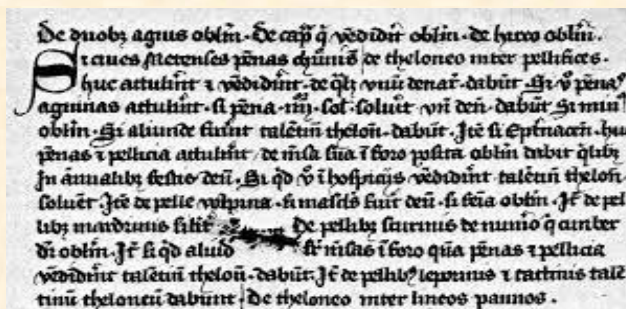 De duobꝫ agnis obl'm · De cap̄ q̄ vēdidit obl'm · de hirco obl'm ·
Si cives Metenses pēnas de theloneo inter pellifices ·
huc attul'int ⁊ vēdid'int · de unū denar̄ dabūt · Si v̊ pēnas
agninas attul'int · si pēna sol' soluet un̄ den̄ · dabūt Si min'
obl'm · Si aliunde talētin̄ thelon̄ · dabūt · Itē si hu
pēnas ⁊ pellicia attul'int de m̄sa sua ī foro posita obl'm dabit
In ānualibꝫ festis den̄ · Si qd v̊ ī hospicijs vēdid'int talētin̄ thelon̄
soluēt · Itē de pelle vulpina · si mascl's fuit den̄ · si obl'm · It̄ de pel
libꝫ mardrinis silit̄ De pellibꝫ de num̄o q̄
dr̄ obl'm · It̄ si qd aliud m̄sas ī foro pēnas ⁊ pellicia
vēdid'int talētin̄ thelon̄ · dabūt · It̄ de pellibꝫ leporinis ⁊ cattinis talē
tinū theloneū dabunt De theloneo inter lineos pannos ·